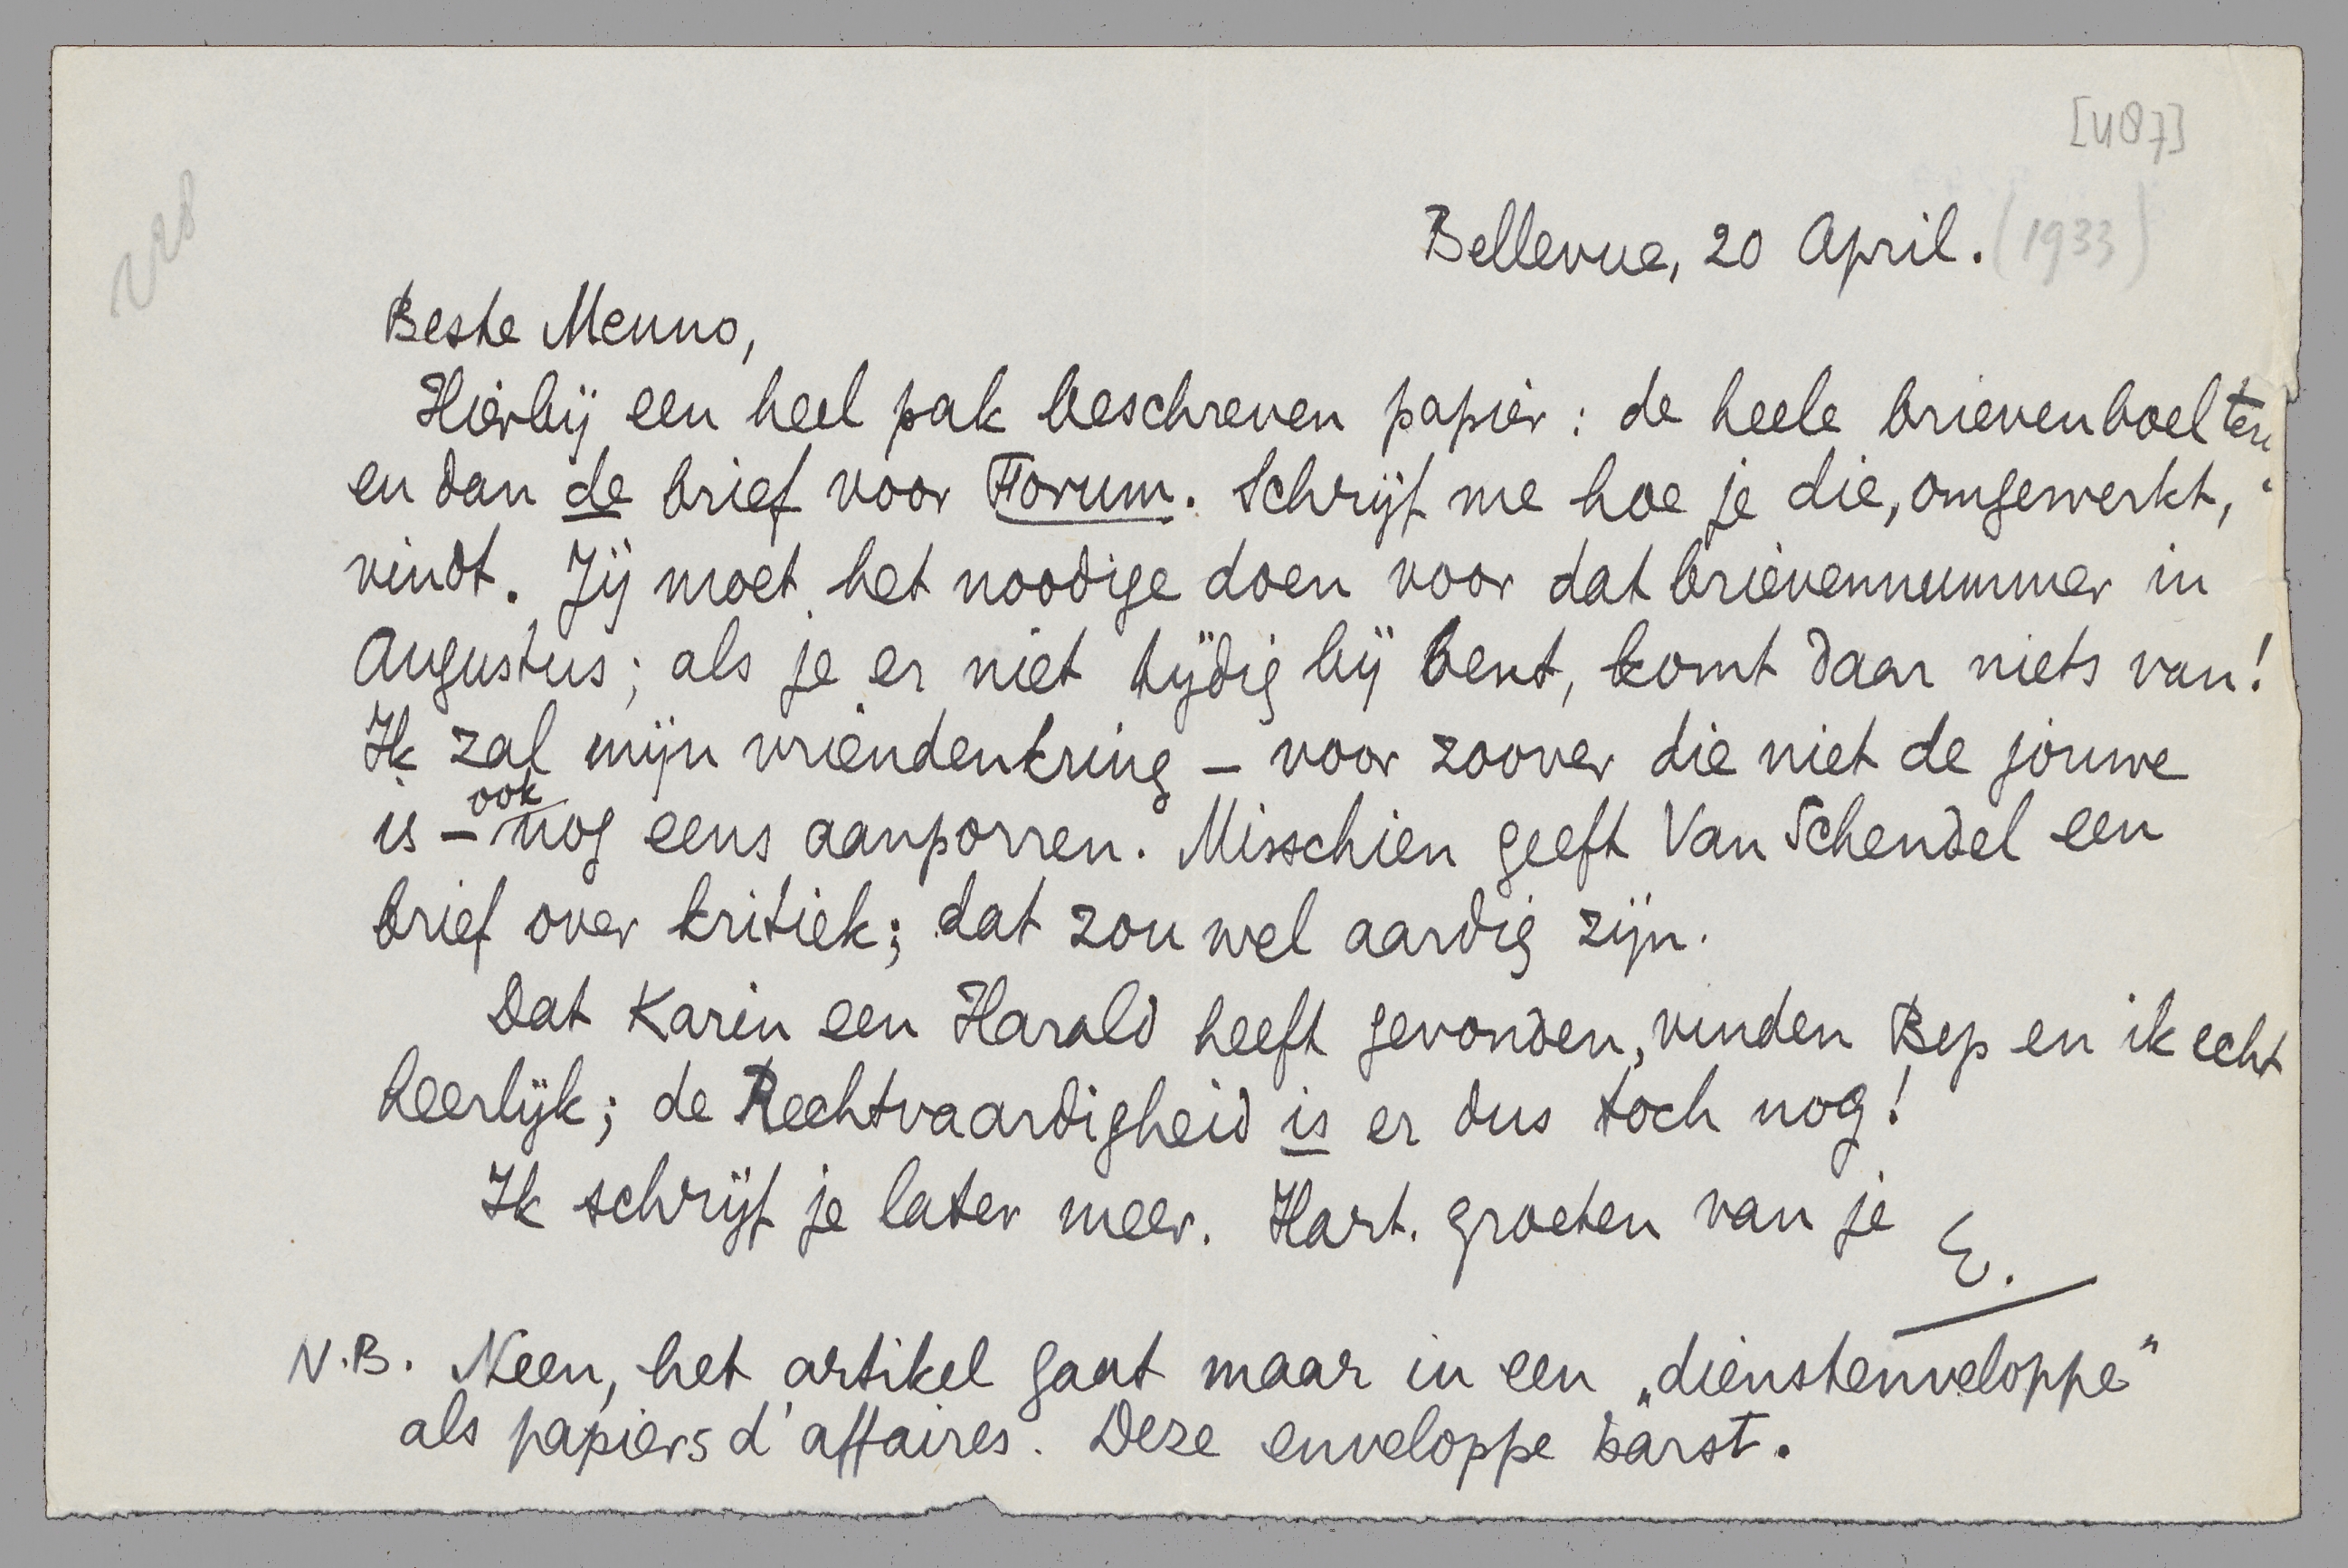 [487]
Bellevue, 20 April. (1933)
Beste Menno,
Hierbij een heel pak beschreven papier: de heele brievenboel
en dan de brief voor Forum. Schrijf me hoe je die, omgewerkt,
vindt. Jij moet het noodige doen voor dat brievennummer in
Augustus; als je er niet tijdig bij bent, komt daar niets van!
Ik zal mijn vriendenkring – voor zoover die niet de jouwe
is – ook nog eens aanporren. Misschien geeft Van Schendel een
brief over kritiek; dat zou wel aardig zijn.
Dat Karin een Harald heeft gevonden, vinden Bep en ik echt
heerlijk; de Rechtvaardigheid is er dus toch nog!
Ik schrijf je later meer. Hart. groeten van je
E.
N.B. Neen, het artikel gaat maar in een „dienstenveloppe”
als papiers d'affaires. Deze enveloppe barst.